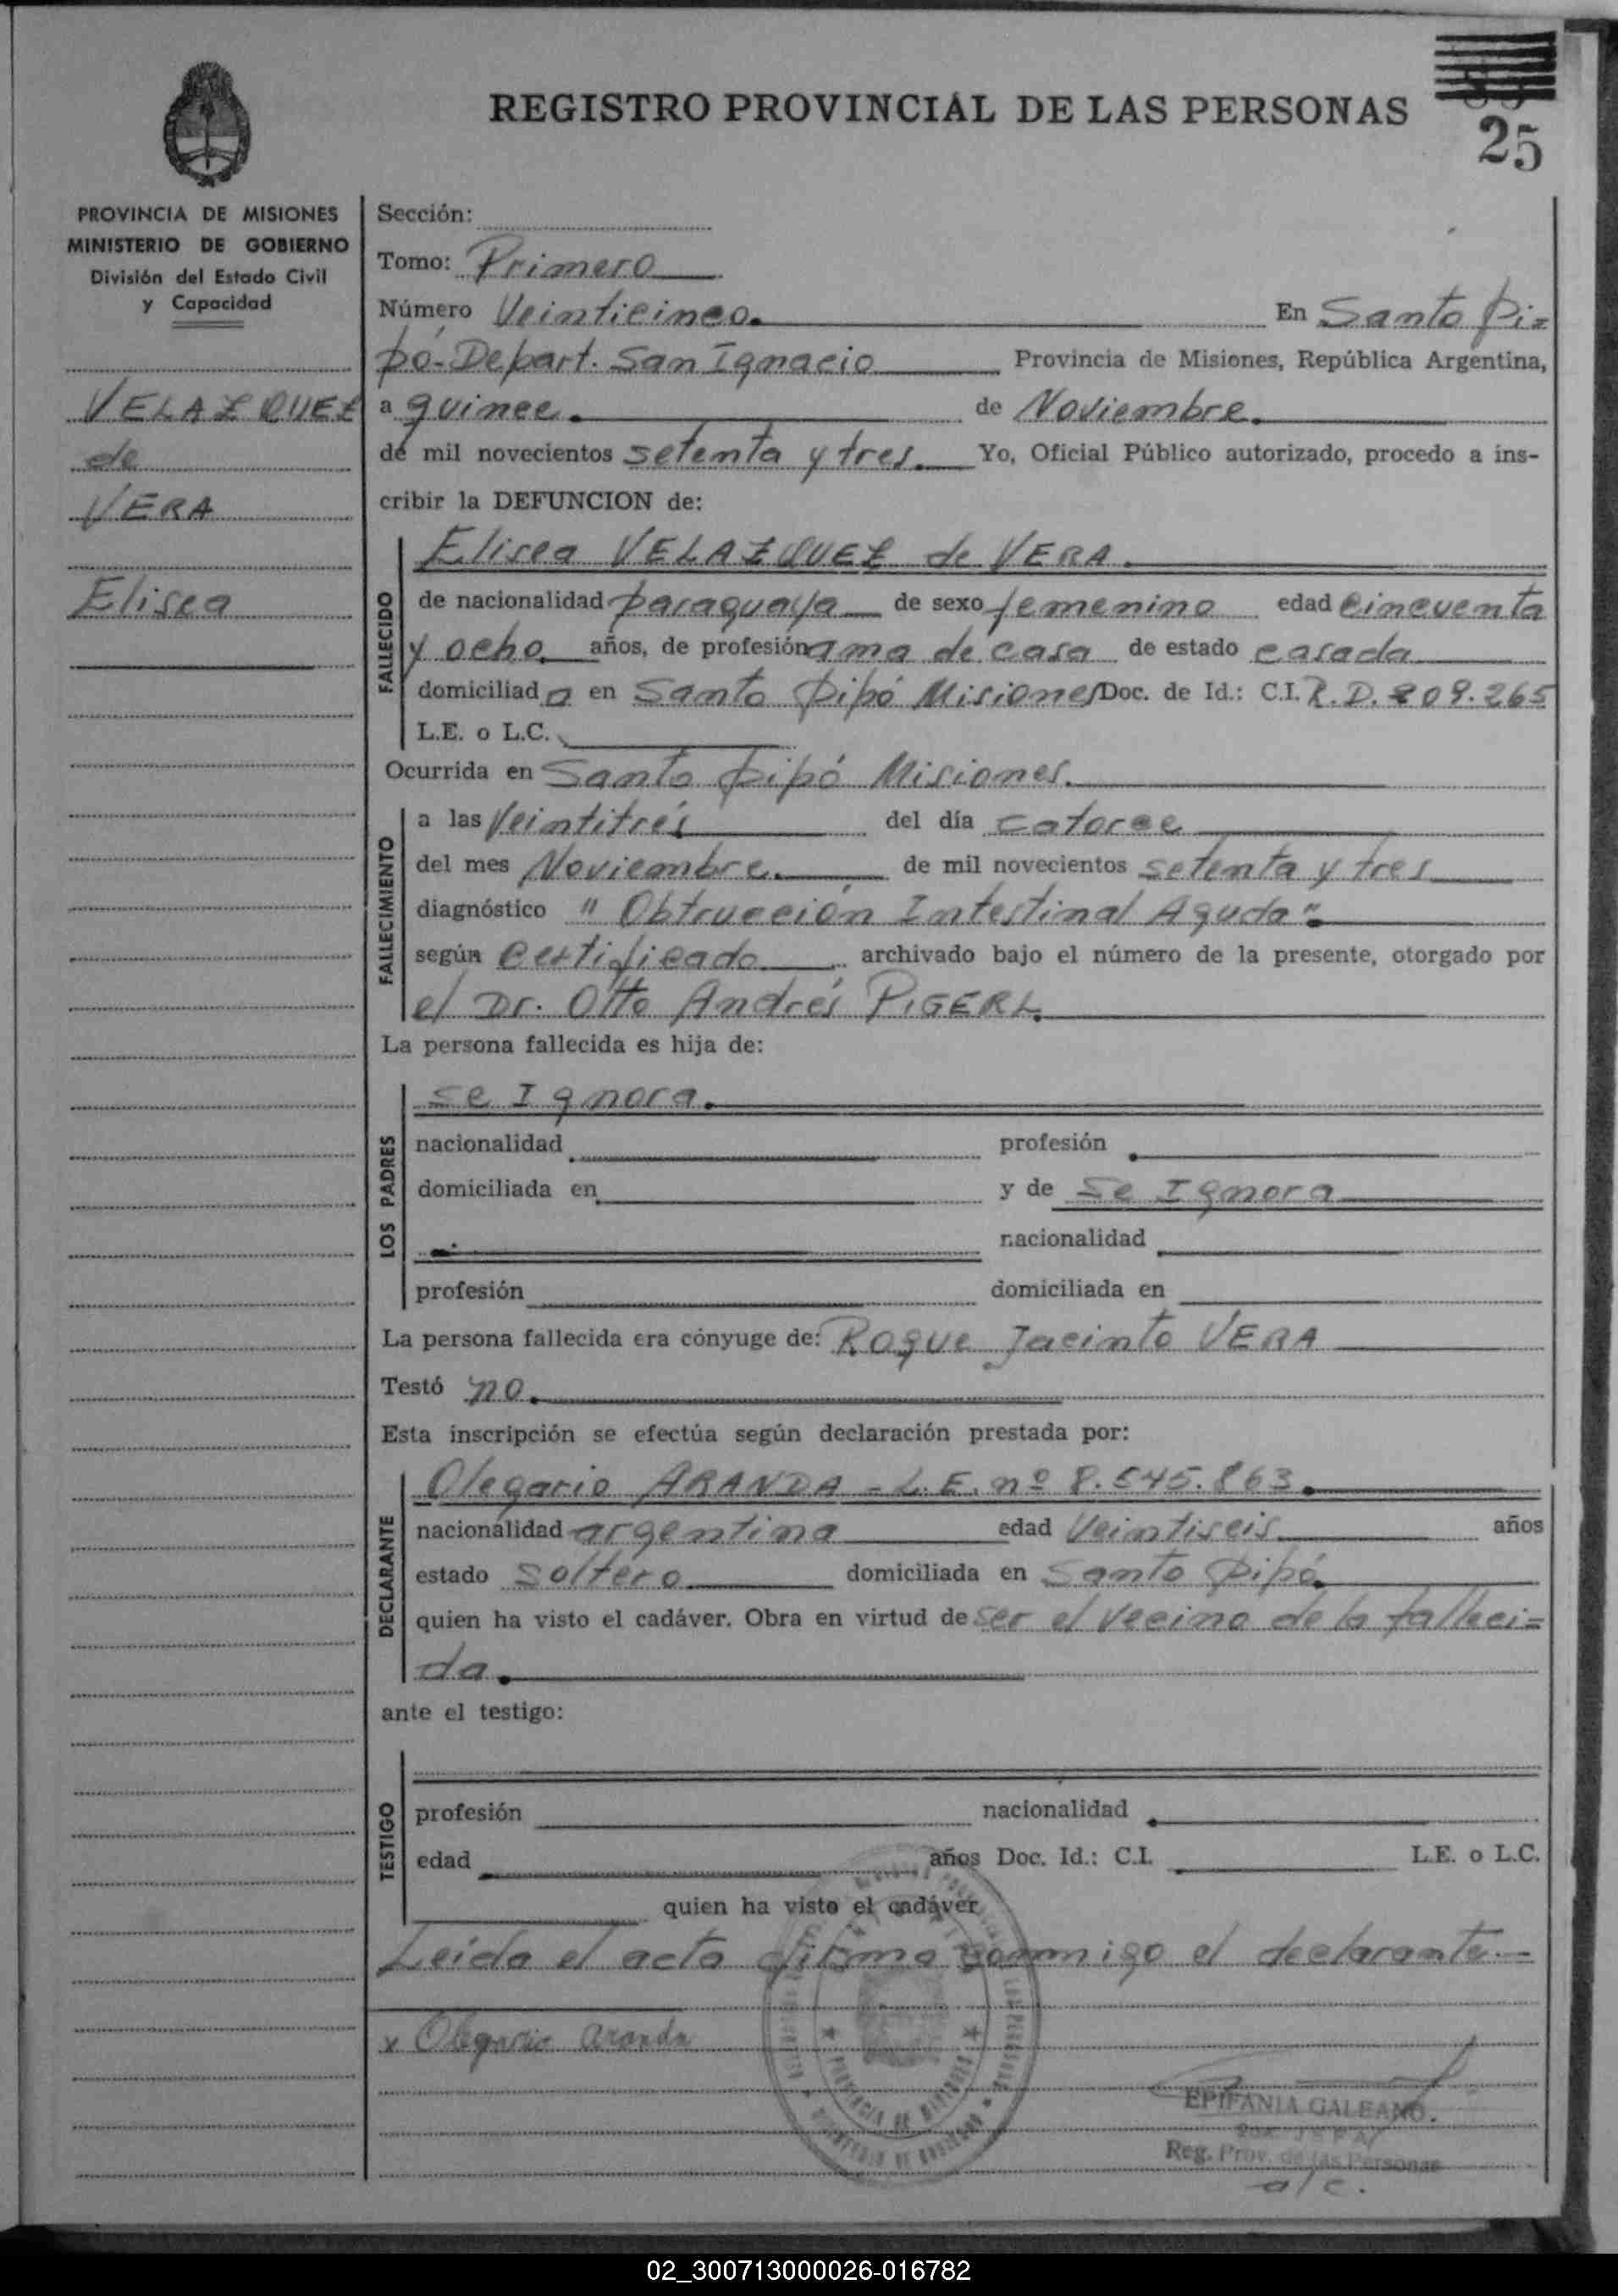 REGISTRO PROVINCIAL DE LAS PERSONAS
25
PROVINCIA DE MISIONES
MINISTERIO DE GOBIERNO
División del Estado Civil
y Capacidad
VELAZQUEZ
de
VERA
Elisea
Sección:
Tomo: Primero
Número Veinticinco. En Santo Pi=
pó-Depart. San Ignacio Provincia de Misiones, República Argentina,
a quince. de Noviembre.
de mil novecientos setenta y tres. Yo, Oficial Público autorizado, procedo a ins-
cribir la DEFUNCION de:
FALLECIDO
Elisea VELAZQUEZ de VERA.
de nacionalidad paraguaya de sexo femenino edad cincuenta
y ocho años, de profesión ama de casa de estado casada
domiciliada en Santo Pipó Misiones Doc. de Id.: C.I. R.D. 209.265
L.E. o L.C.
Ocurrida en Santo Pipó Misiones.
FALLECIMIENTO
a las Veintitrés del día catorce
del mes Noviembre. de mil novecientos setenta y tres
diagnóstico "Obtrucción Intestinal Aguda".
según certificado archivado bajo el número de la presente, otorgado por
el Dr. Otto Andrés PIGERL.
La persona fallecida es hija de:
LOS PADRES
se Ignora.
nacionalidad profesión
domiciliada en y de Se Ignora
nacionalidad
profesión domiciliada en
La persona fallecida era cónyuge de: Roque Jacinto VERA
Testó no.
Esta inscripción se efectúa según declaración prestada por:
DECLARANTE
Olegario ARANDA - L.E. nº 8.545.863.
nacionalidad argentina edad Veintiseis años
estado soltero domiciliada en Santo Pipó.
quien ha visto el cadáver. Obra en virtud de ser el vecino de la falleci=
da.
ante el testigo:
TESTIGO
profesión nacionalidad
edad años Doc. Id.: C.I. L.E. o L.C.
quien ha visto el cadáver
Leida el acta firma conmigo el declarante.-
x Olegario Aranda
PROVINCIA DE MISIONES
EPIFANIA GALEANO.
Reg. Prov. de las Personas
a/c.
02_300713000026-016782